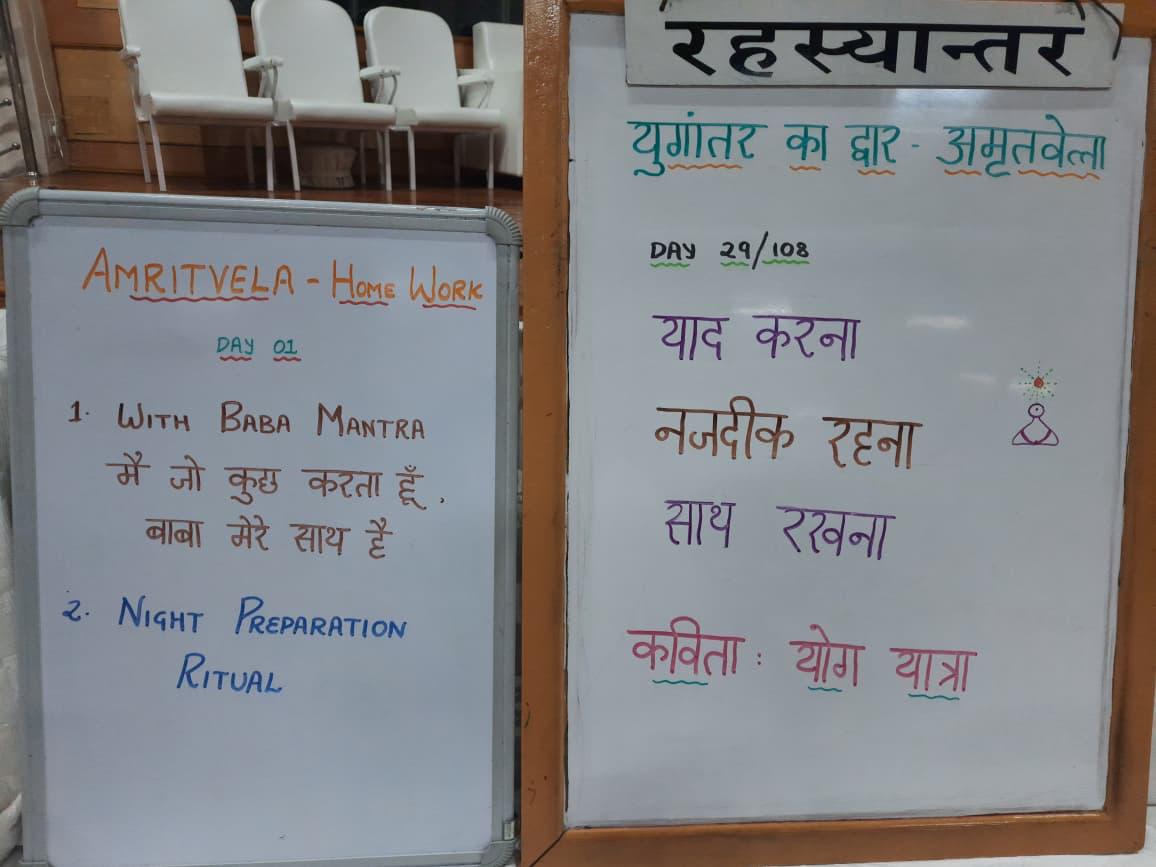 AMRITVELA - HOME WORK
DAY 01
1. WITH BABA MANTRA
मै जो कुछ करता हूँ,
बाबा मेरे साथ है
2. NIGHT PREPARATION
RITUAL
रहस्यान्तर
युगांतर का द्वार - अमृतवेला
DAY 29/108
याद करना
नजदीक रहना
साथ रखना
कविता : योग यात्रा